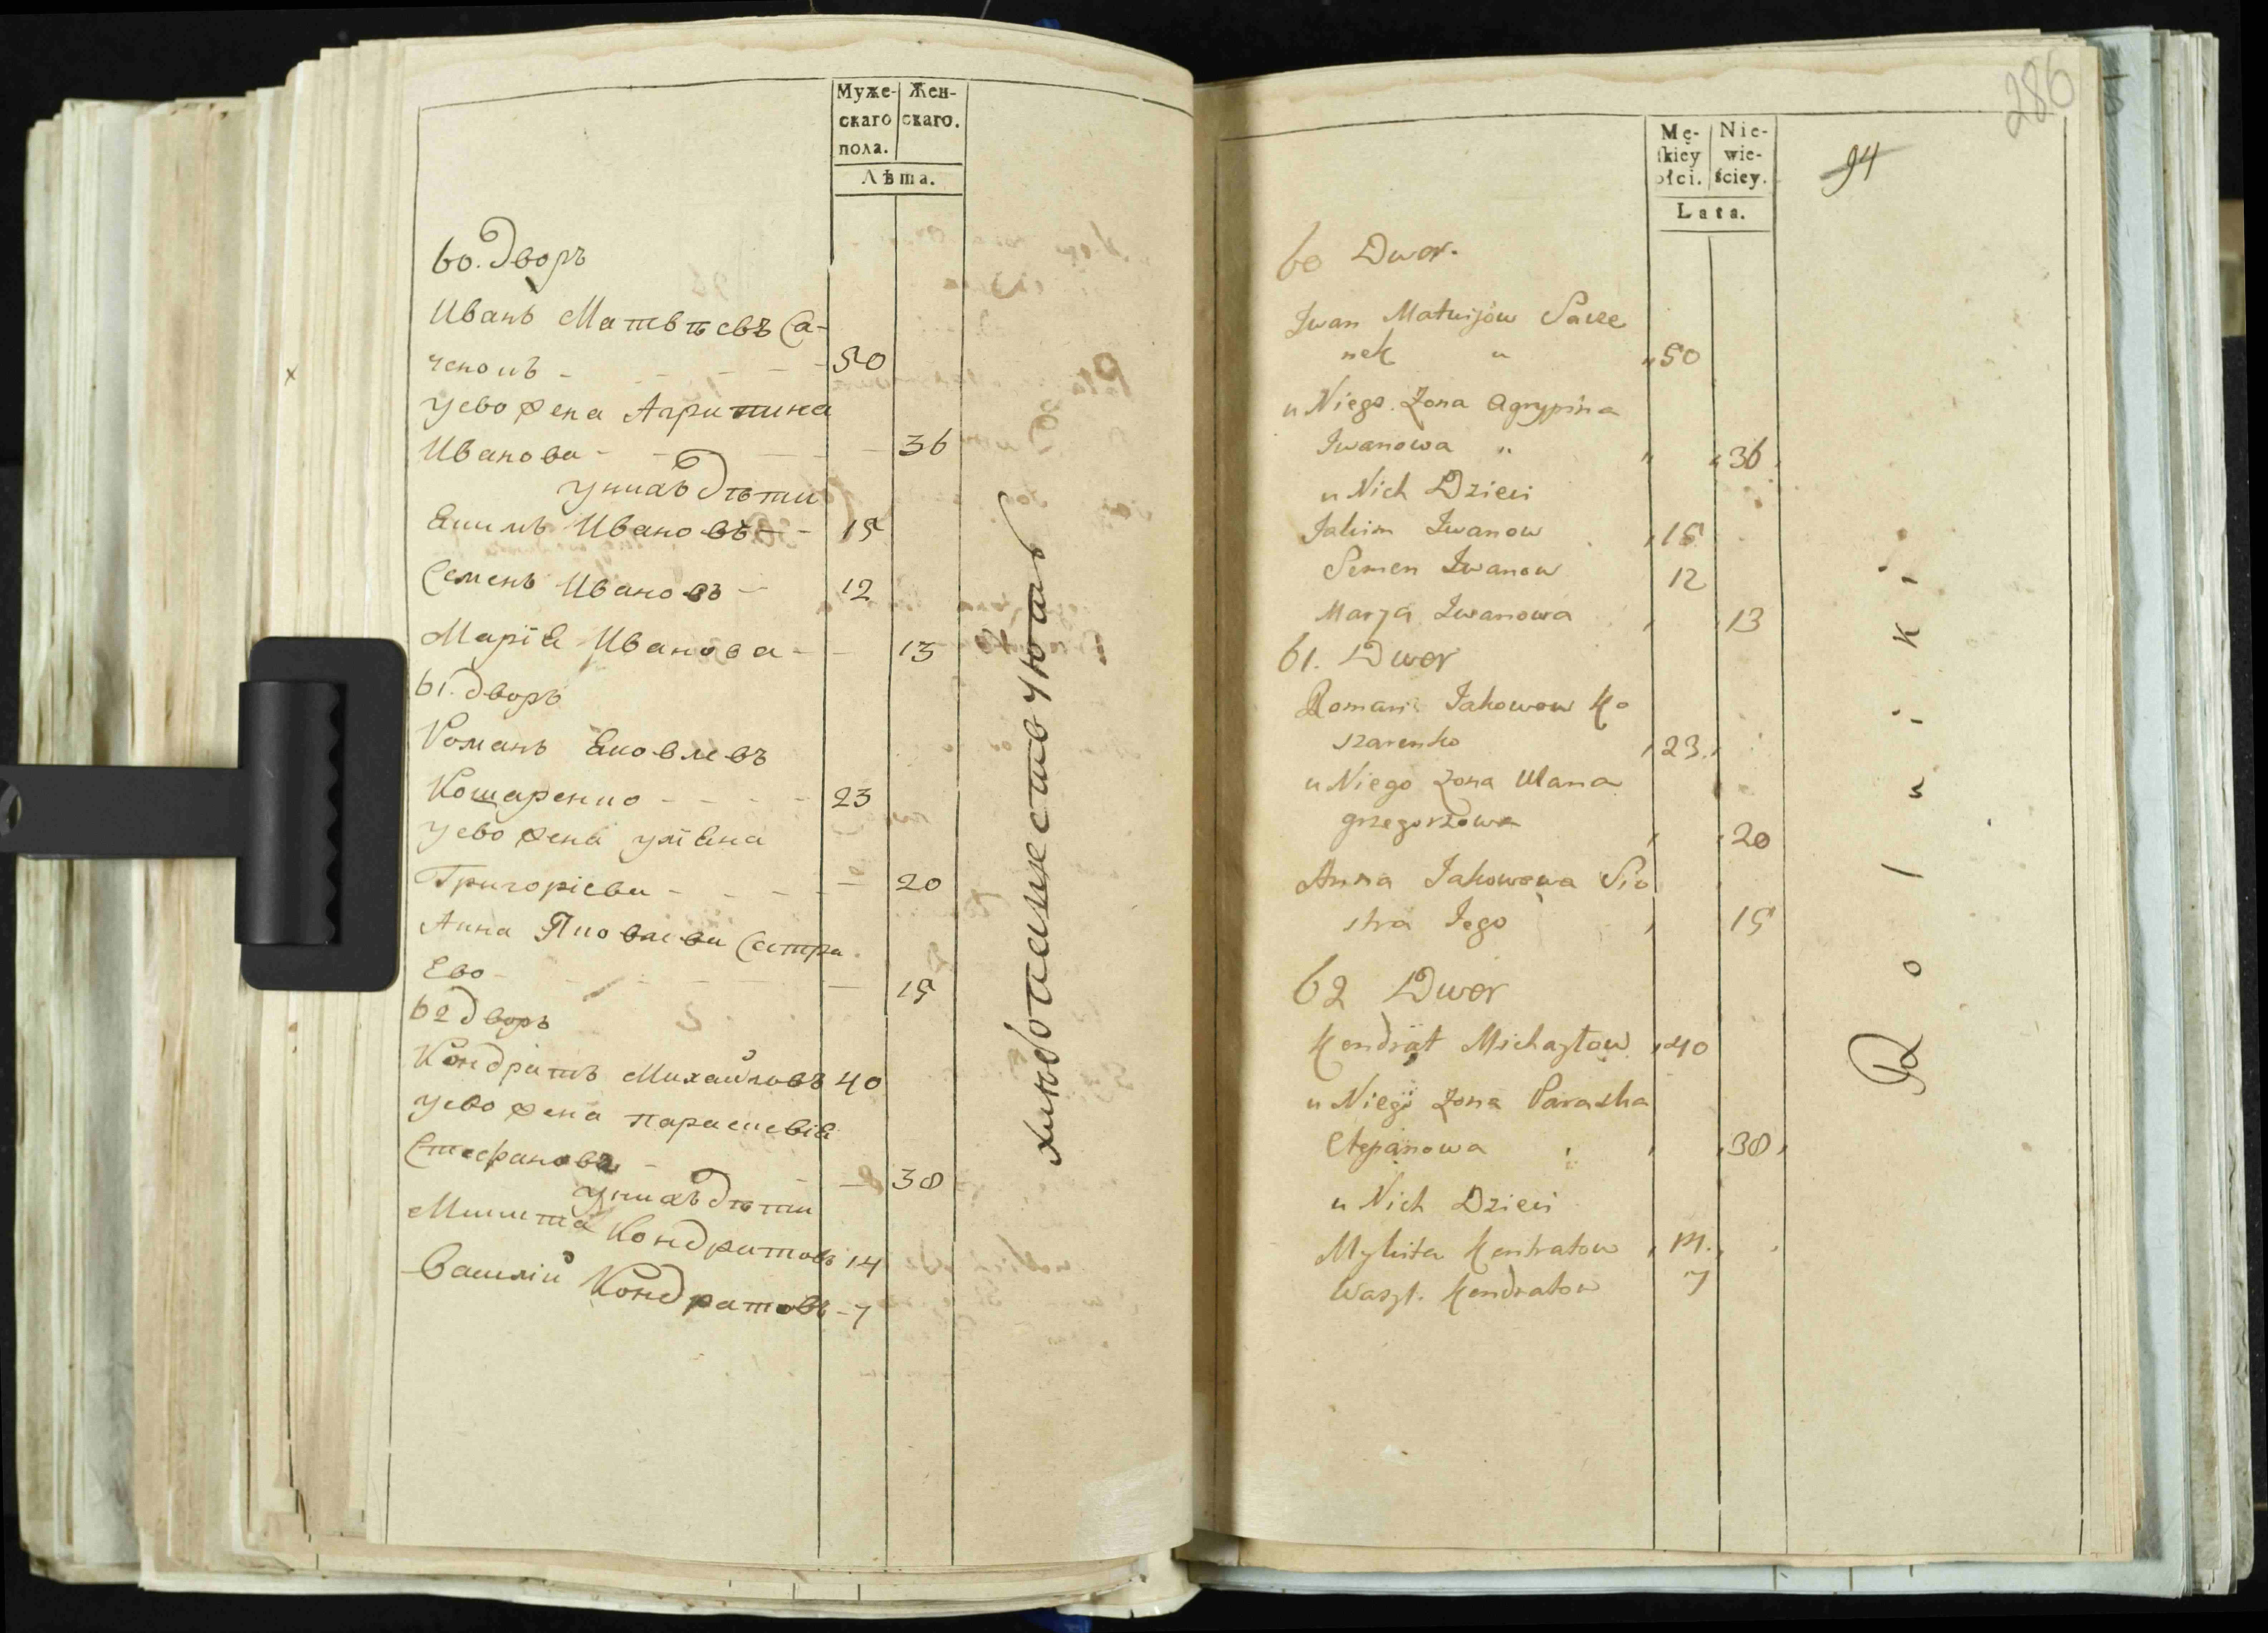 Муже-
скаго
пола.
Жен-
скаго.
Лѣта.
60. дворъ
Иванъ Матвѣевъ Са-
ченокъ 50
уево жена Агрипина
Иванова 36
унихъ дѣти
Екимъ Ивановъ 15
Семенъ Ивановъ 12
Марiя Иванова 13
61. дворъ
Романъ Яковлевъ
Кошаренко 23
уево жена улiяна
Григорiева 20
Анна Яковлева Сестра
Ево 15
62 дворъ
Кондратъ Михайловъ 40
уево жена параскевiя
Стефанова 38
унихъ дѣти
Микита Кондратовъ 14
Василiй Кондратовъ 7
хлѣбопашествуютъ
286
Mę-
skiey
płci.
Nie-
wie-
ściey.
Lata.
94
60 Dwor.
Iwan Matwijow Sacze
nek 50
u Niego Zona Agrypina
Iwanowa 36
u Nich Dzieci
Jakim Iwanow 15
Semen Iwanow 12
Marya Iwanowa 13
61. Dwor
Roman Jakowow Ko
szarenko 23
u Niego Zona Ulana
grzegorzowa 20
Anna Jakowowa Sio
stra Jego 15
62 Dwor
Kondrat Michayłow 40
u Niego Zona Paraska
Stepanowa 38
u Nich Dzieci
Mykita Kondratow 14
Wasyl. Kondratow 7
Rolniki